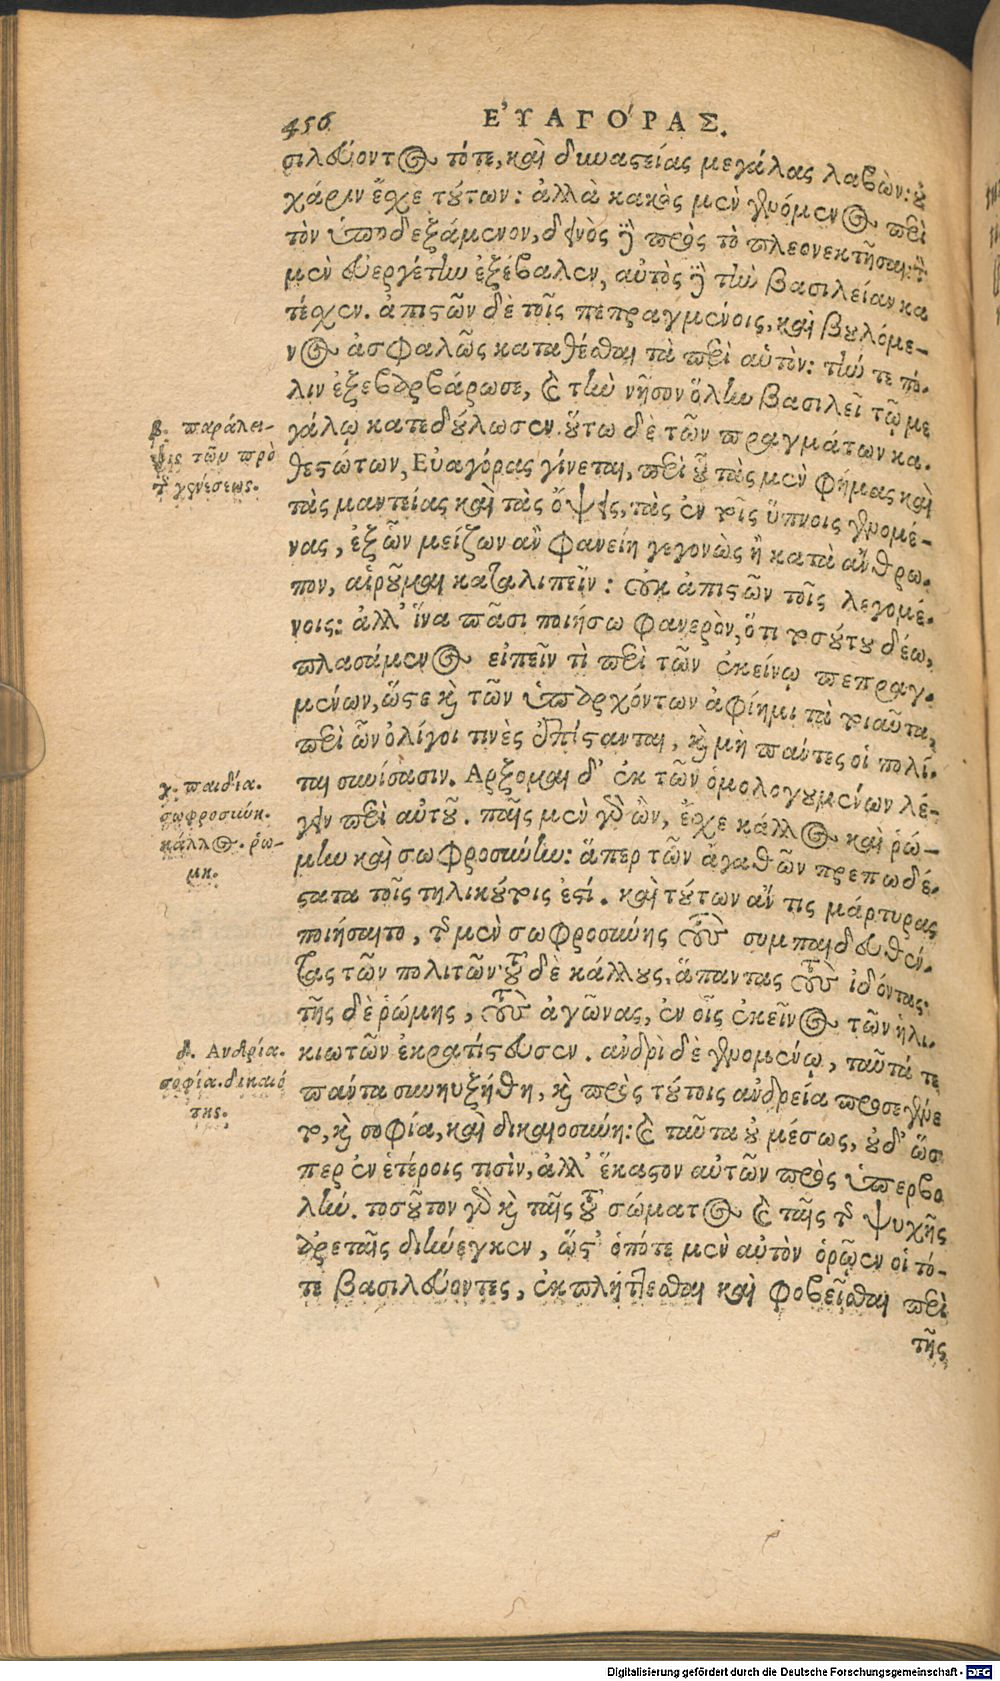 456
ΕΥ̓ΑΓΟ΄ΡΑΣ.
σιλεύοντος τότε, καὶ δυναστείας μεγάλας λαβὼν: οὐ
χάριν ἔσχε τούτων: ἀλλὰ κακὸς μὲν γενόμενος περὶ
τὸν ὑποδεξάμενον, δεινὸς δὲ πρὸς τὸ πλεονεκτῆσαι: τὸν
μὲν εὐεργέτην ἐξέβαλεν, αὐτὸς δὲ τὴν βασιλείαν κα
τέσχεν. ἀπιστῶν δὲ τοῖς πεπραγμένοις, καὶ βουλόμε-
νος ἀσφαλῶς καταθέσθαι τὰ περὶ αὑτὸν: τήν τε πό-
λιν ἐξεβαρβάρωσε, καὶ τὴν νῆσον ὅλην βασιλεῖ τῷ με
γάλῳ κατεδούλωσεν. οὕτω δὲ τῶν πραγμάτων κα-
θεστώτων, Εὐαγόρας γίνεται, περὶ οὗ τὰς μὲν φήμας καὶ
τὰς μαντείας καὶ τὰς ὄψεις, τὰς ἐν τοῖς ὕπνοις γενομέ-
νας, ἐξ ὧν μείζων ἂν φανείη γεγονὼς ἢ κατὰ ἄνθρω-
πον, αἱροῦμαι καταλιπεῖν: οὐκ ἀπιστῶν τοῖς λεγομέ-
νοις: ἀλλ' ἵνα πᾶσι ποιήσω φανερὸν, ὅτι τοσούτου δέω,
πλασάμενος εἰπεῖν τὶ περὶ τῶν ἐκείνῳ πεπραγ-
μένων, ὥστε καὶ τῶν ὑπαρχόντων ἀφίημι τὰ τοιαῦτα,
περὶ ὧν ὀλίγοι τινὲς ἐπίστανται, καὶ μὴ πάντες οἱ πολί-
ται συνίσασιν. Αρξομαι δ' ἐκ τῶν ὁμολογουμένων λέ-
γειν περὶ αὐτοῦ. παῖς μὲν γὰρ ὢν, ἔσχε κάλλος καὶ ῥώ-
μην καὶ σωφροσύνην: ἅπερ τῶν ἀγαθῶν πρεπωδέ-
στατα τοῖς τηλικούτοις ἐστί. καὶ τούτων ἄν τις μάρτυρας
ποιήσαιτο, τῆς μὲν σωφροσύνης τοὺς συμπαιδευθέν-
τας τῶν πολιτῶν: τοῦ δὲ κάλλους, ἅπαντας τοὺς ἰδόντας:
τῆς δὲ ῥώμης, τοὺς ἀγῶνας, ἐν οἷς ἐκεῖνος τῶν ἡλι-
κιωτῶν ἐκρατίστευσεν. ἀνδρὶ δὲ γενομένῳ, ταῦτά τε
πάντα συνηυξήθη, καὶ πρὸς τούτοις ἀνδρεία προσεγένε
το, καὶ σοφία, καὶ δικαιοσύνη: καὶ ταῦτα οὐ μέσως, οὐδ' ὥσ
περ ἐν ἑτέροις τισὶν, ἀλλ' ἕκαστον αὐτῶν πρὸς ὑπερβο
λήν. τοσοῦτον γὰρ καὶ ταῖς τοῦ σώματος καὶ ταῖς τῆς ψυχῆς
ἀρεταῖς διήνεγκεν, ὥστ' ὁπότε μὲν αὐτὸν ὁρῷεν οἱ τό-
τε βασιλεύοντες, ἐκπλήττεσθαι καὶ φοβεῖσθαι περὶ
τῆς
β. παράλει-
ψις τῶν πρὸ
τῆς γενέσεως.
γ. παιδία.
σωφροσύνη.
κάλλος. ῥώ-
μη.
δ. Ανδρία.
σοφία. δικαιό
της.
Digitalisierung gefördert durch die Deutsche Forschungsgemeinschaft - DFG